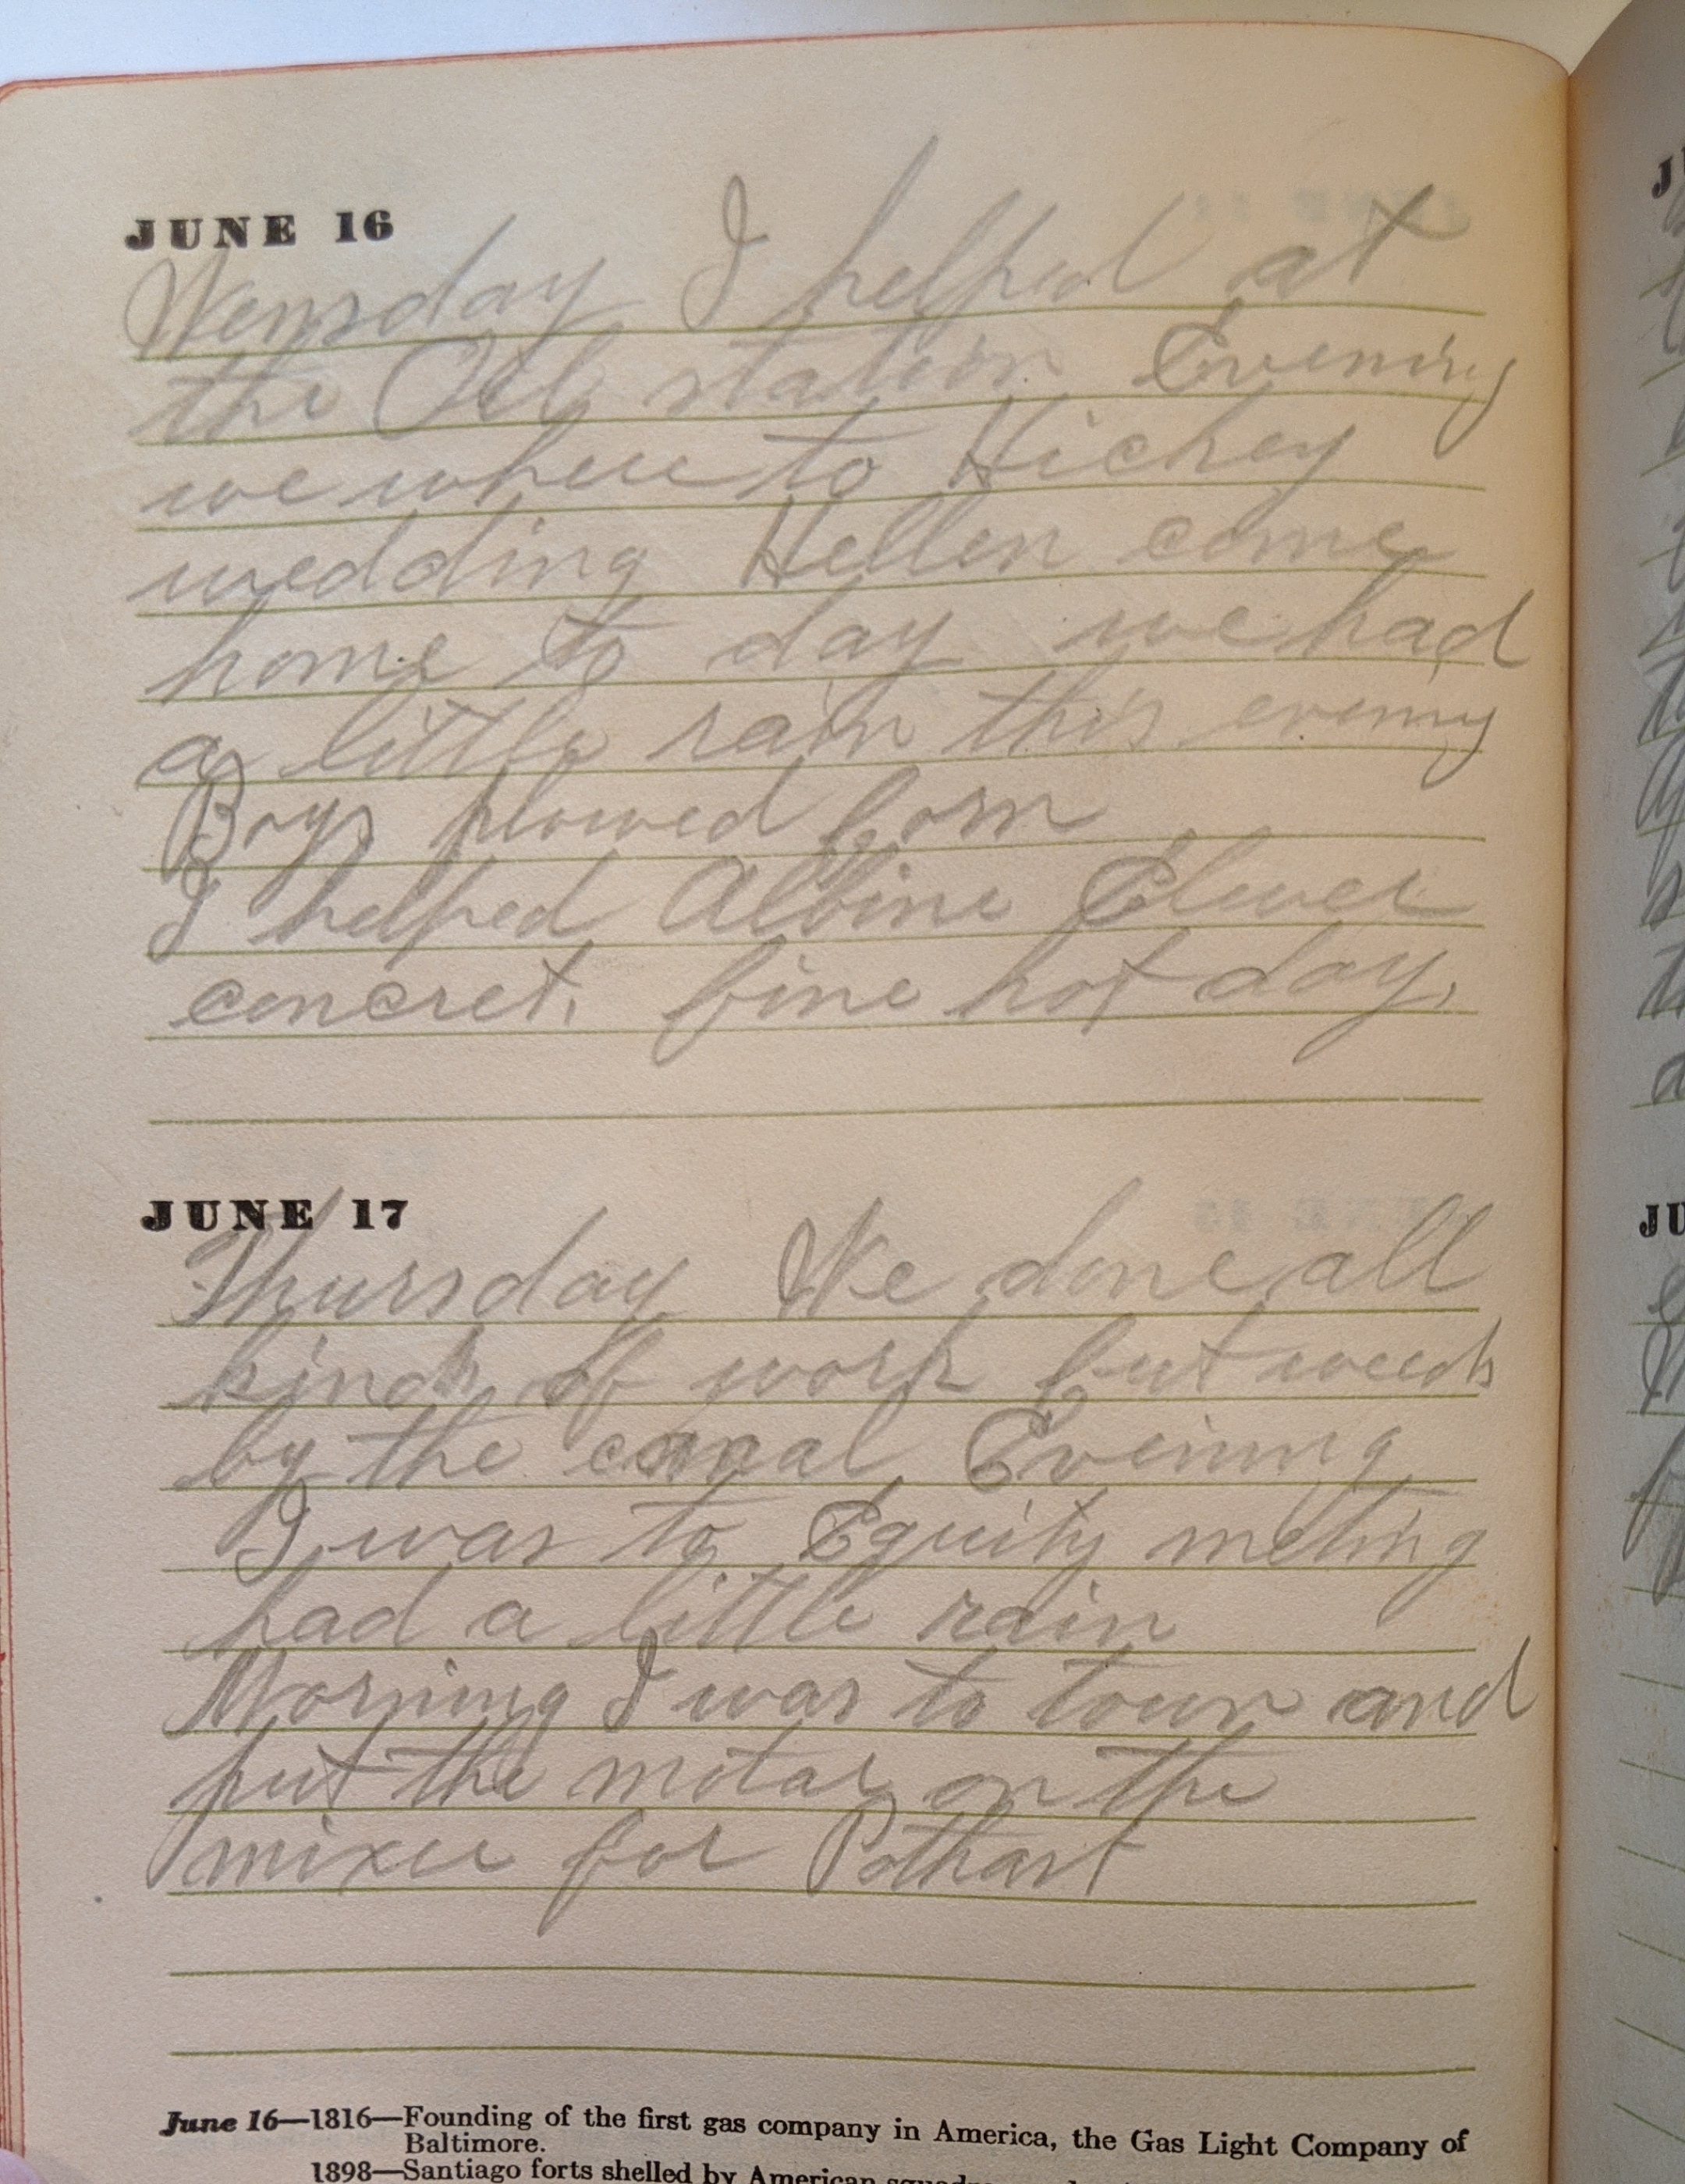 JUNE 16
Wensday I helped at
the Oil station Evening
we where to Hickey
wedding Hellen come
home to day we had
a little rain this evening
Boys plowed corn
I helped Albine
concret. fine hot day.
JUNE 17
Thursday We done all
kinds of work cut weeds
by the canal Evening
I was to Equity meting
had a little rain
Morning I was to town and
put the motar on the
mixer for Pothast
June 16—1816—Founding of the first gas company in America, the Gas Light Company of
Baltimore.
1898—Santiago forts shelled by American